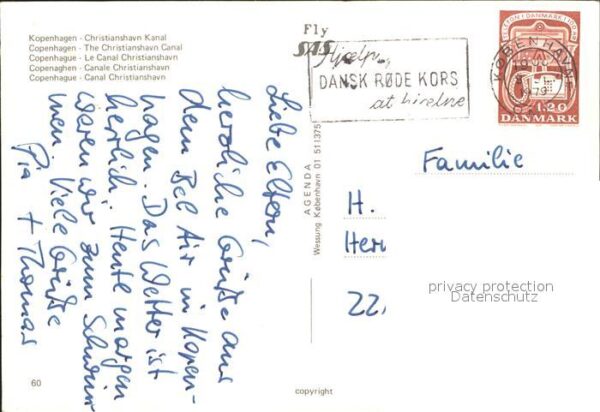 Kopenhagen - Christianshavn Kanal
Copenhagen - The Christianshavn Canal
Copenhague - Le Canal Christianshavn
Copenaghen - Canale Christianshavn
Copenhague - Canal Christianshavn
Fly
SAS
Hjælp
DANSK RØDE KORS
at hjælpe
KØBENHAVN
1979
1.20
DANMARK
Liebe Eltern,
herzliche Grüße aus
dem Bel Air in Kopen-
hagen. Das Wetter ist
herrlich. Heute morgen
waren wir zum Schwim
men. Viele Grüße
Pia + Thomas
AGENDA
Wessung København 01 511375
Familie
H.
Her
22,
privacy protection
Datenschutz
60
copyright